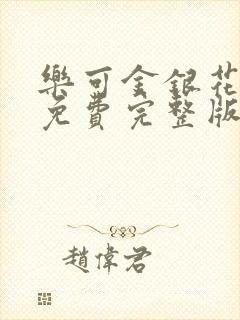 樂可金銀花
免費完整版
趙偉君